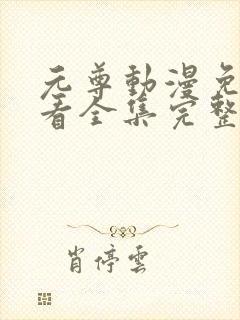 元尊動漫免
看全集完整
肖停雲